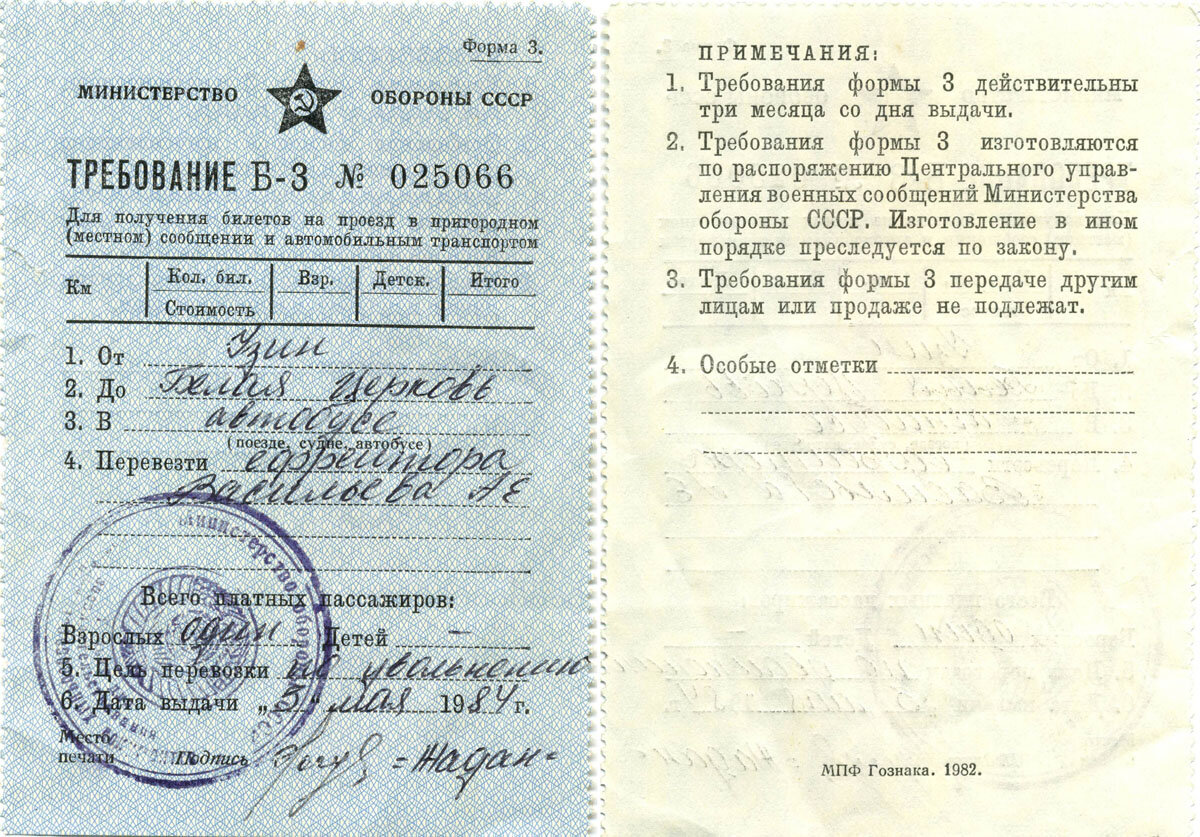 Форма 3.
МИНИСТЕРСТВО ОБОРОНЫ СССР
ТРЕБОВАНИЕ Б-3 № 025066
Для получения билетов на проезд в пригородном
(местном) сообщении и автомобильным транспортом
Км Кол. бил. Взр. Детск. Итого
Стоимость
1. От Узин
2. До Белая Церковь
3. В автобусе
(поезде, судне, автобусе)
4. Перевезти ефрейтора
Васильева АЕ
Министерство обороны
Всего платных пассажиров:
Взрослых один Детей —
5. Цель перевозки по увольнению
6. Дата выдачи „3" мая 1984 г.
Место
печати Подпись =Жадан=
ПРИМЕЧАНИЯ:
1. Требования формы 3 действительны
три месяца со дня выдачи.
2. Требования формы 3 изготовляются
по распоряжению Центрального управ-
ления военных сообщений Министерства
обороны СССР. Изготовление в ином
порядке преследуется по закону.
3. Требования формы 3 передаче другим
лицам или продаже не подлежат.
4. Особые отметки
МПФ Гознака. 1982.